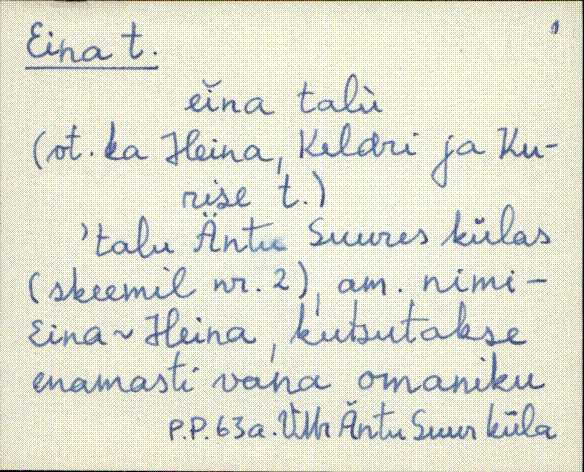 Eina t.
eĭna talù
(vt. ka Heina, Keldri ja Ku-
rise t.)
'talu Äntu Suures külas
(skeemil nr. 2), am. nimi -
Eina ~ Heina, kutsutakse
enamasti vana omaniku
P.P. 63a. VMr Äntu Suur küla